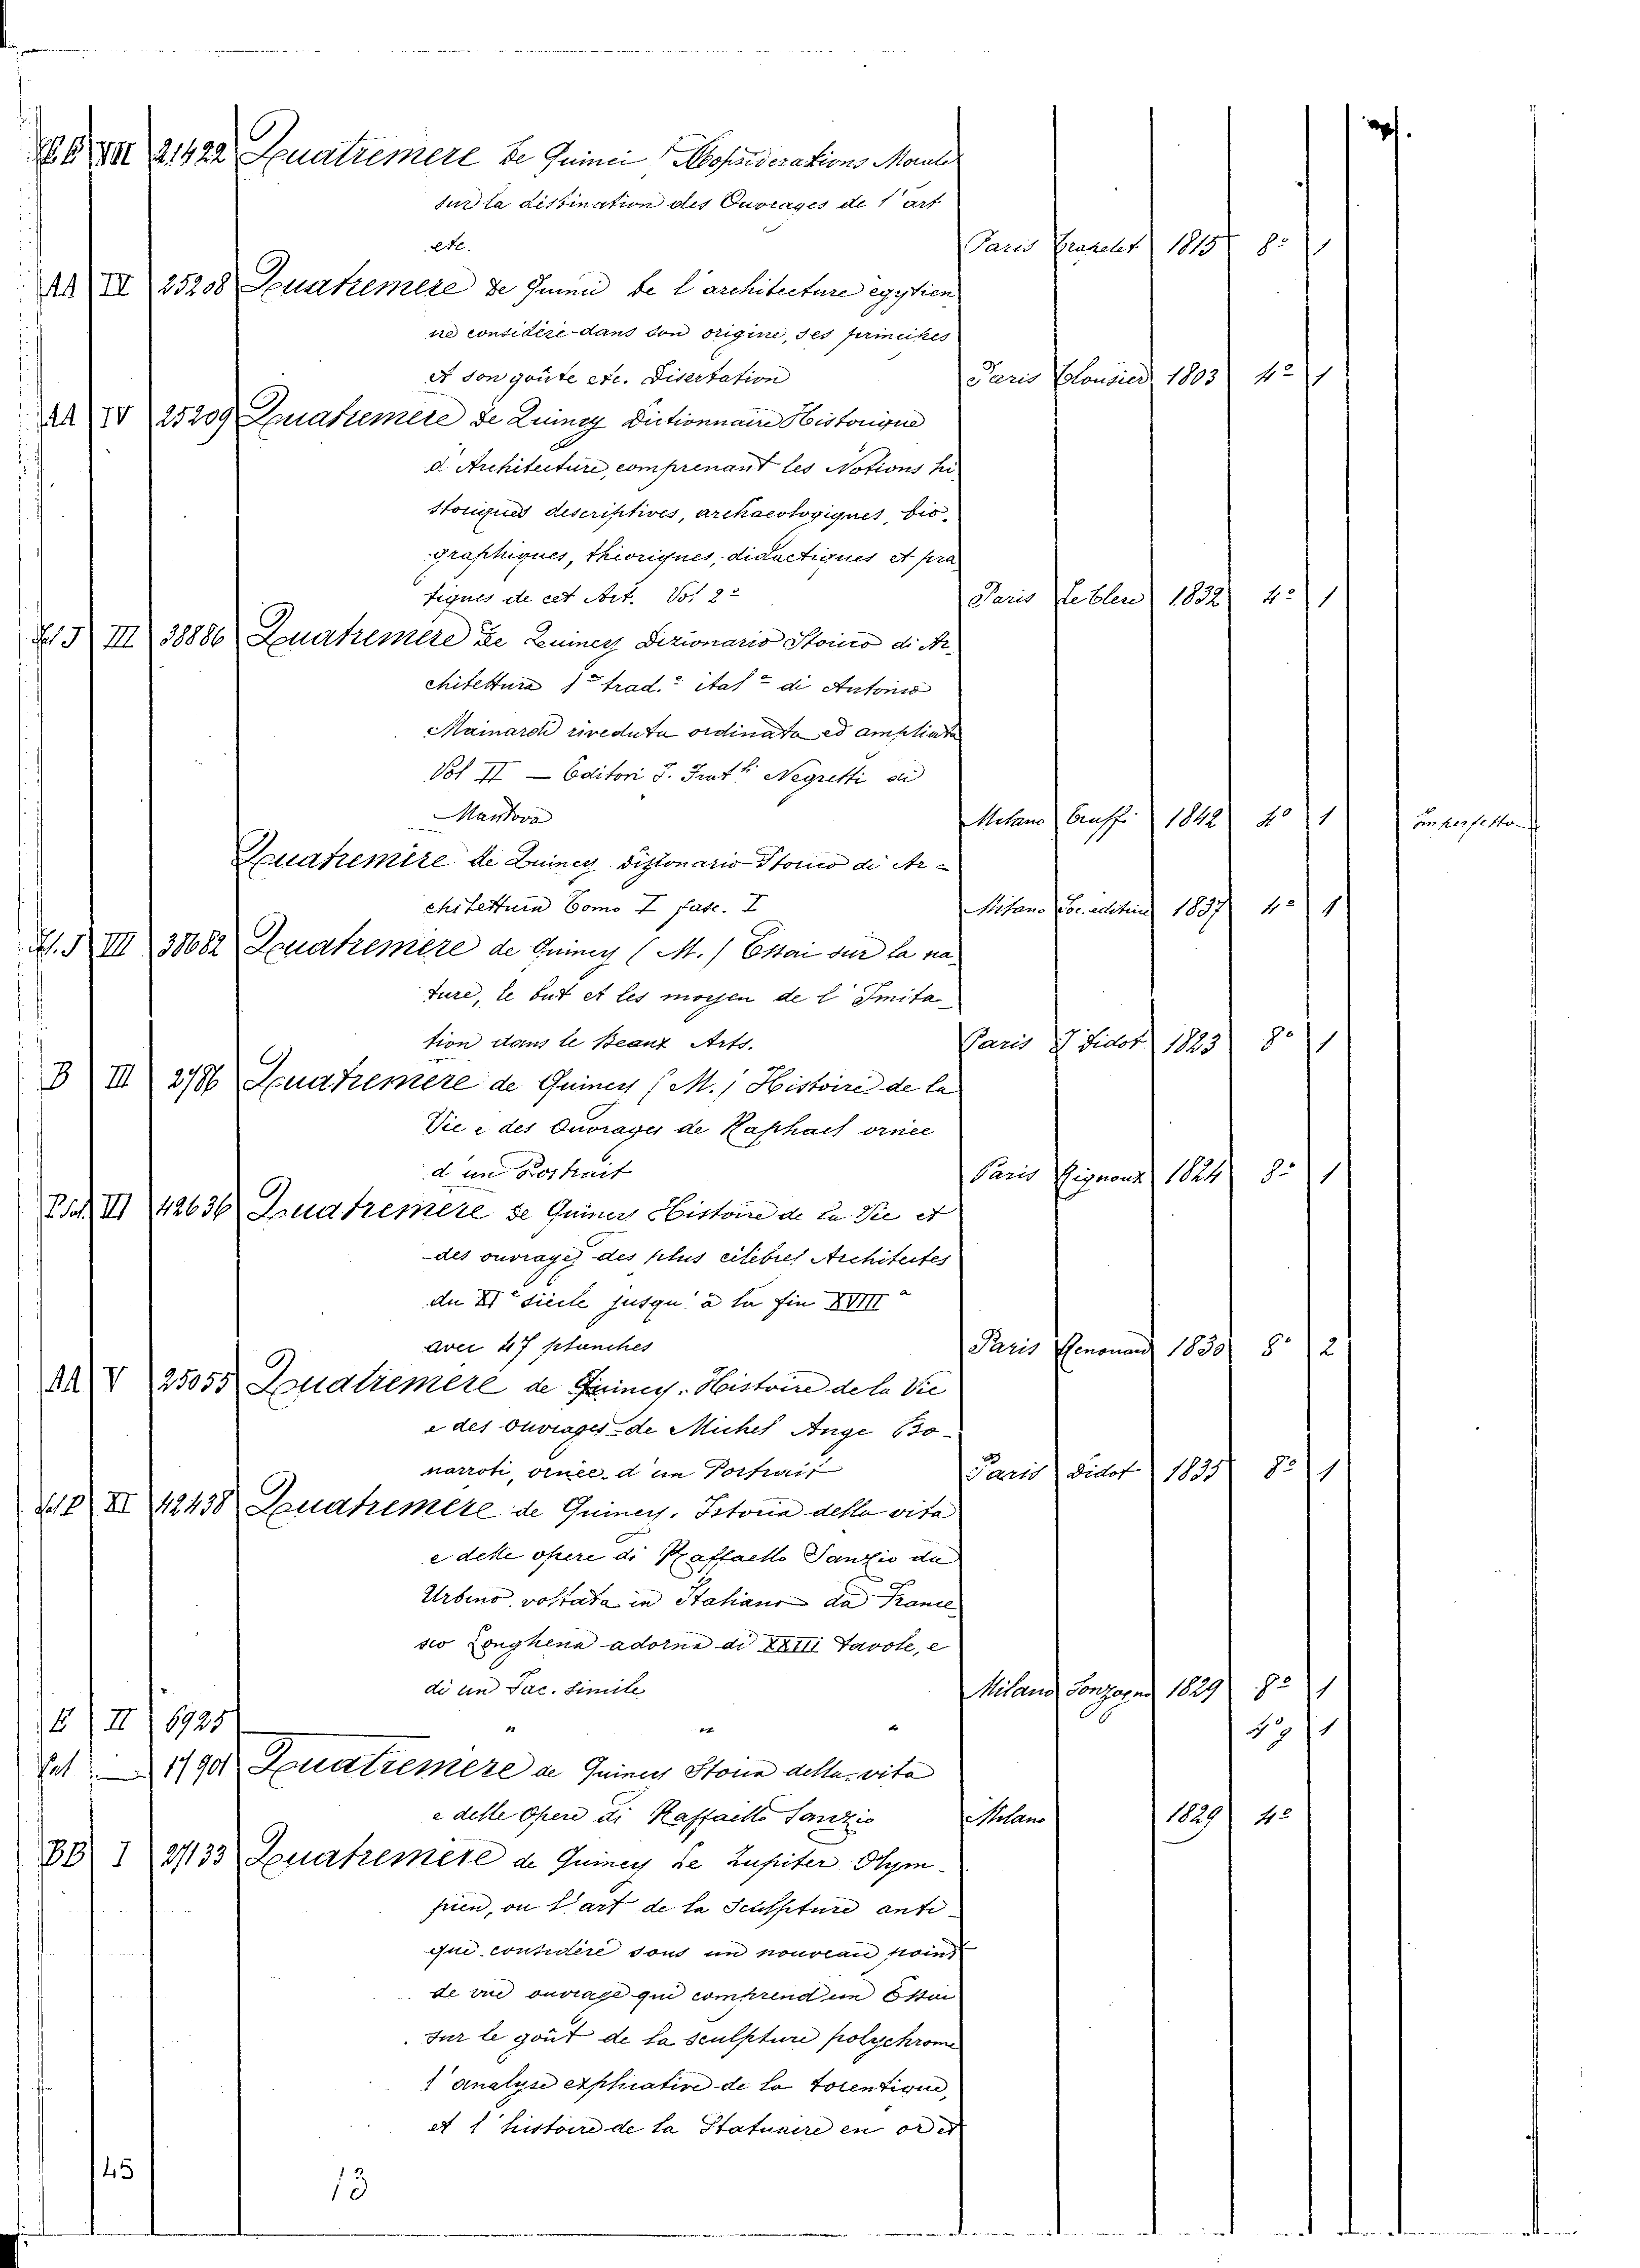 VIII 21422 Quatremere de Quinci, Morale
sur la distination des Ouvrages de l'art
etc. Paris Crapelet 1815 8º 1
AA IV 25208 Quatremere de Quinci de l'architecture egytien
ne considere dans son origine, ses principes
et son goûte etc. Disertation Paris 1803 4º 1
AA IV 25209 Quatremere de Quincy Dictionnaire Historique
d'Architecture, comprenant les Notions hi
storiques descriptives, archaeologiques, bio-
graphiques, théoriques, didactiques et pra
tiques de cet Art. Vol 2º Paris Leclere 1832 4º 1
III 38886 Quatremere de Quincy Dizionario Stoico di Ar-
chitettura 1ª trad.e ital.a di Antonio
Mainardi riveduta ordinata ed ampliata
Vol II — Editori J. Frat.li Negretti di
Mantova Milano 1842 4º 1 imperfetto
Quatremére de Quincy Dizionario Storico di Ar-
chitettura Tomo I fasc. I Milano Soc. editrice 1837 4º 1
III 38682 Quatremere de Quincy (M.) Essai sur la na-
ture, le but et les moyen de l'Imita
tion dans le Beaux Arts. Paris J Didot 1823 8º 1
B III 2786 Quatremere de Quincy (M.) Histoire de la
Vie e des Ouvrages de Raphael ornée
d'un Portrait Paris 1824 8º 1
III 42636 Quatremere de Quincy Histoire de la Vie et
des ouvrages des plus celebres Architectes
du XIº siecle jusqu'à la fin XVIIIº
avec 47 planches Paris Renouard 1830 8º 2
AA V 25055 Quatremere de Quincy. Histoire de la Vie
e des Ouvrages de Michel Ange Bo-
narroti, ornée d'un Portrait Paris Didot 1835 8º 1
XI 42438 Quatremere de Quincy. Istoria della vita
e delle opere di Raffaello Sanzio da
Urbino voltata in Italiano da France
sco Longhena adorna di XXIII Tavole, e
di un Fac. Simile Milano Sonzogno 1829 8º 1
E II 6925 " " " 4º g 1
1790 Quatremere de Quincy Storia della vita
e delle Opere di Raffaello Sanzio Milano 1829 4º
BB I 27133 Quatremere de Quincy Le Jupiter Olym-
pien, ou l'art de la Sculpture anti-
que considére sous un nouveau point
de vue ouvrage qui comprend un Essai
sur le goût de la sculpture polychrome
l'analyse explicative de la toreutique,
et l'histoire de la Statuaire en or et
45 13